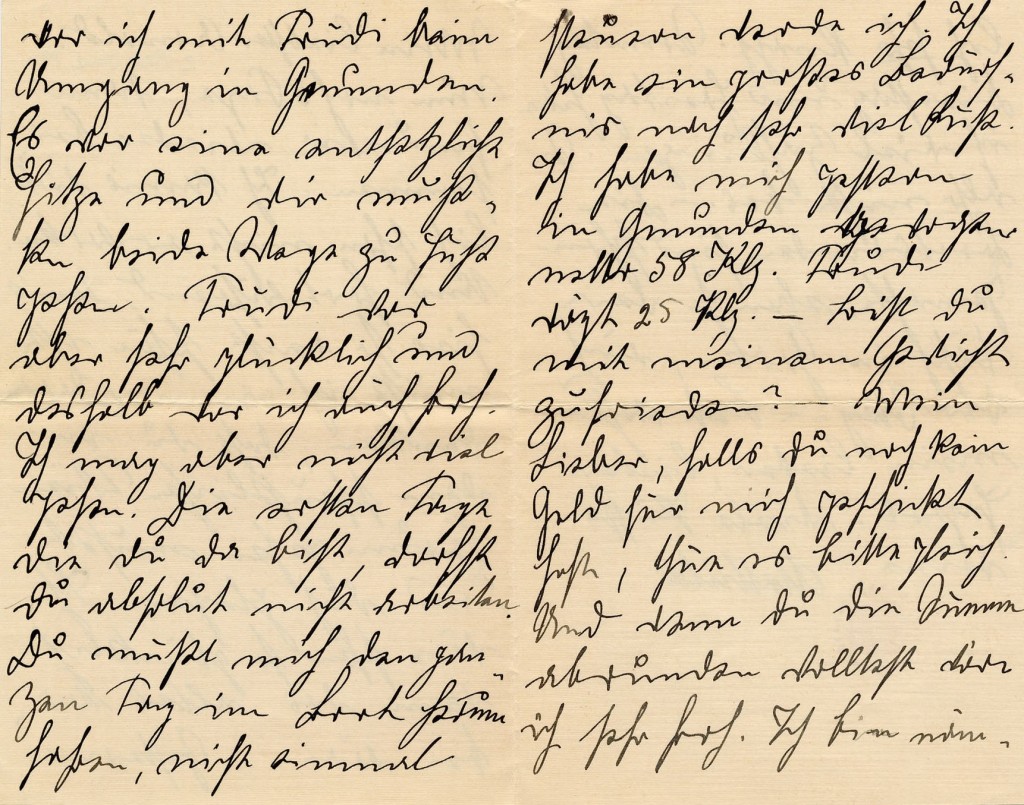 war ich mit Trudi beim
Umgang in Gmunden.
Es war eine entsetzliche
Hitze und wir muß-
ten beide Wege zu Fuß
gehen. Trudi war
aber sehr glücklich und
deshalb war ich auch froh.
Ich mag aber nicht viel
gehen. Die ersten Tage
die du da bist, darfst
du absolut nicht arbeiten.
Du mußt mich den gan-
zen Tag im Boot herum
fahren, nicht einmal
steuern werde ich. Ich
habe ein großes Bedürf-
nis nach sehr viel Ruhe.
Ich habe mich gestern
in Gmunden gewogen
netto 58 Klg. Trudi
wägt 25 Klg. — Bist du
mit meinem Gewicht
zufrieden? — Mein
Lieber, falls du noch kein
Geld für mich geschickt
hast, thue es bitte gleich.
Und wenn du die Summe
abrunden wolltest wäre
ich sehr froh. Ich bin näm-